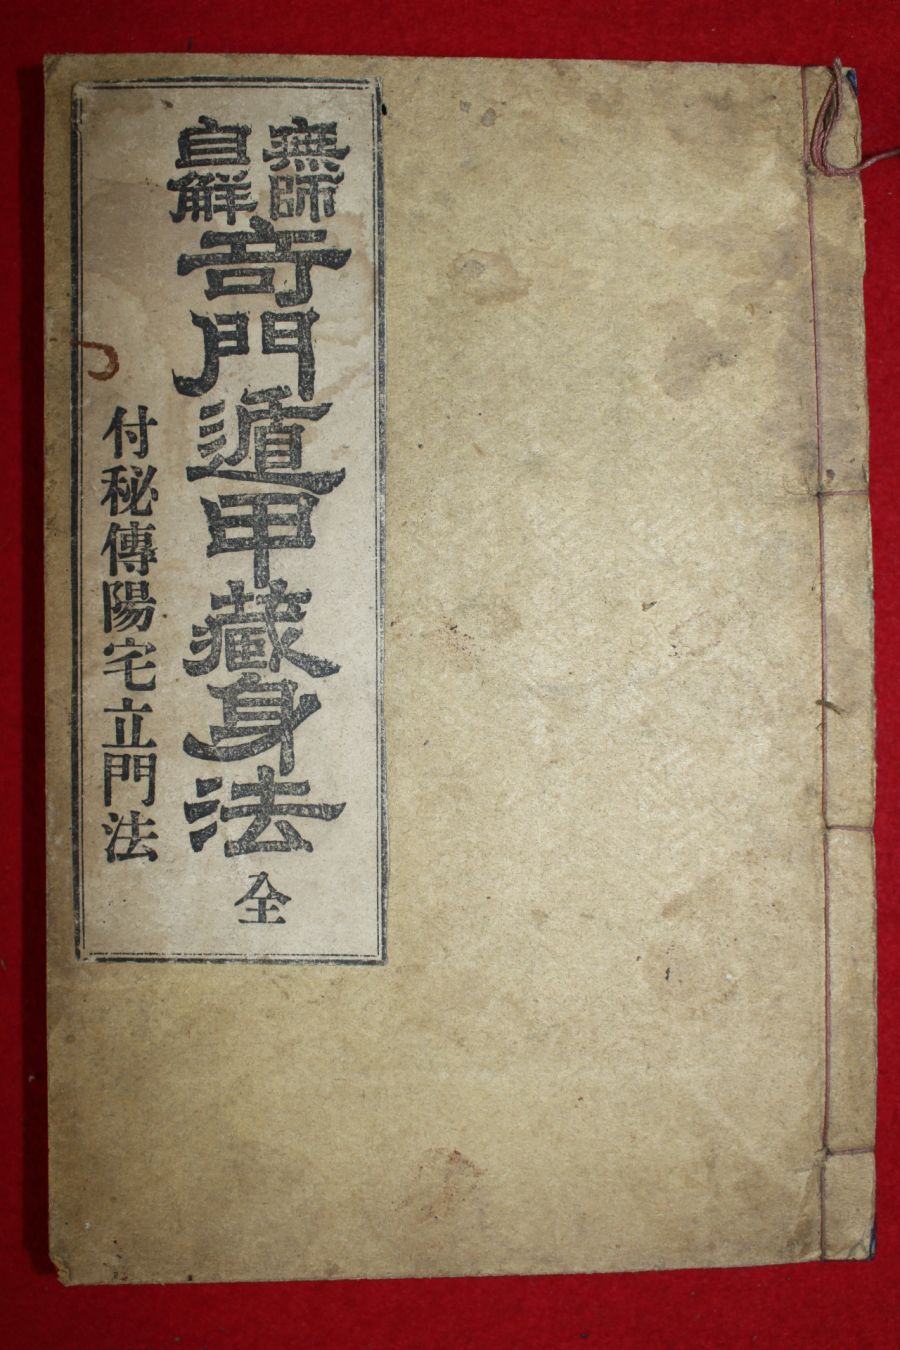 無師
自解
奇門遁甲藏身法 全
付秘傳陽宅立門法